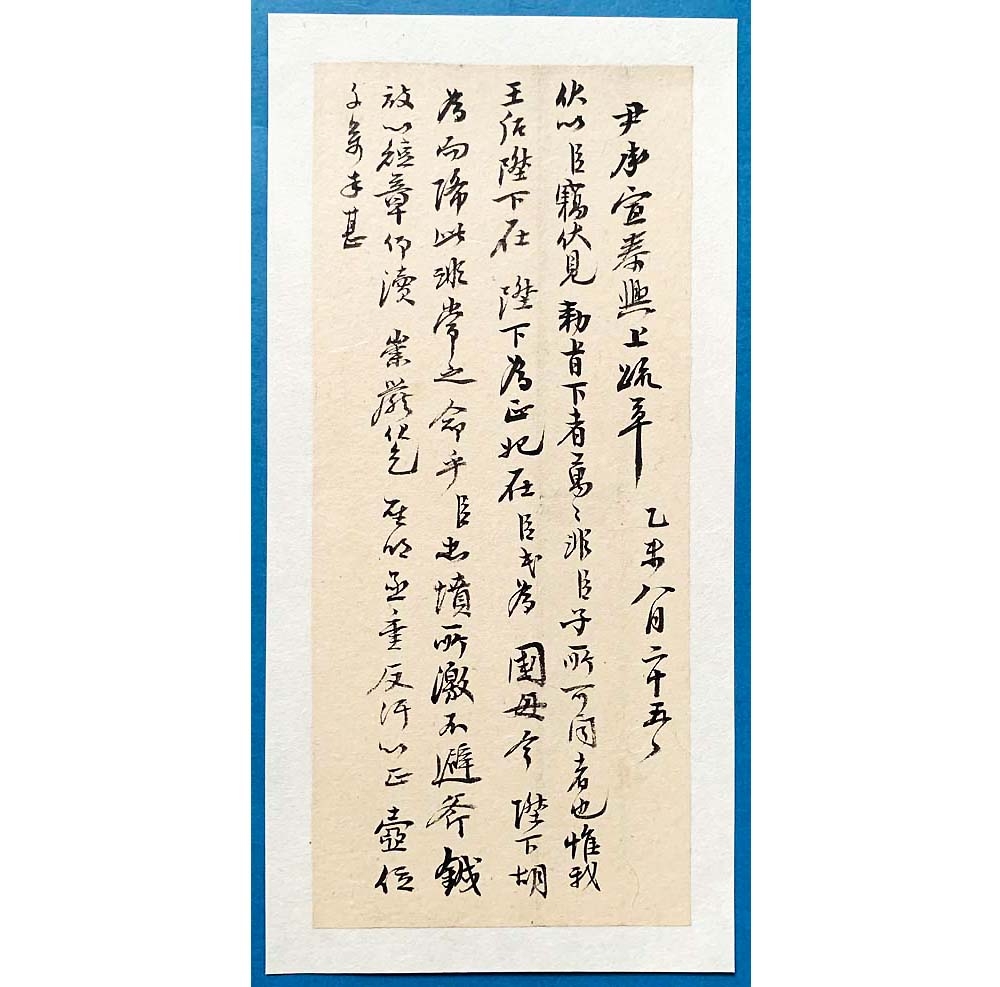 尹承宣泰興上疏草 乙未八月二十五日
伏以臣竊伏見 勅旨下者萬萬非臣子所可聞者也惟我
王后陛下在 陛下爲正妃在臣民爲 國母今 陛下胡
爲而降此非常之命乎臣忠憤所激不避斧鉞
敢以短章仰瀆 崇嚴伏乞 聖明亟垂反汗以正 壼位
千萬幸甚